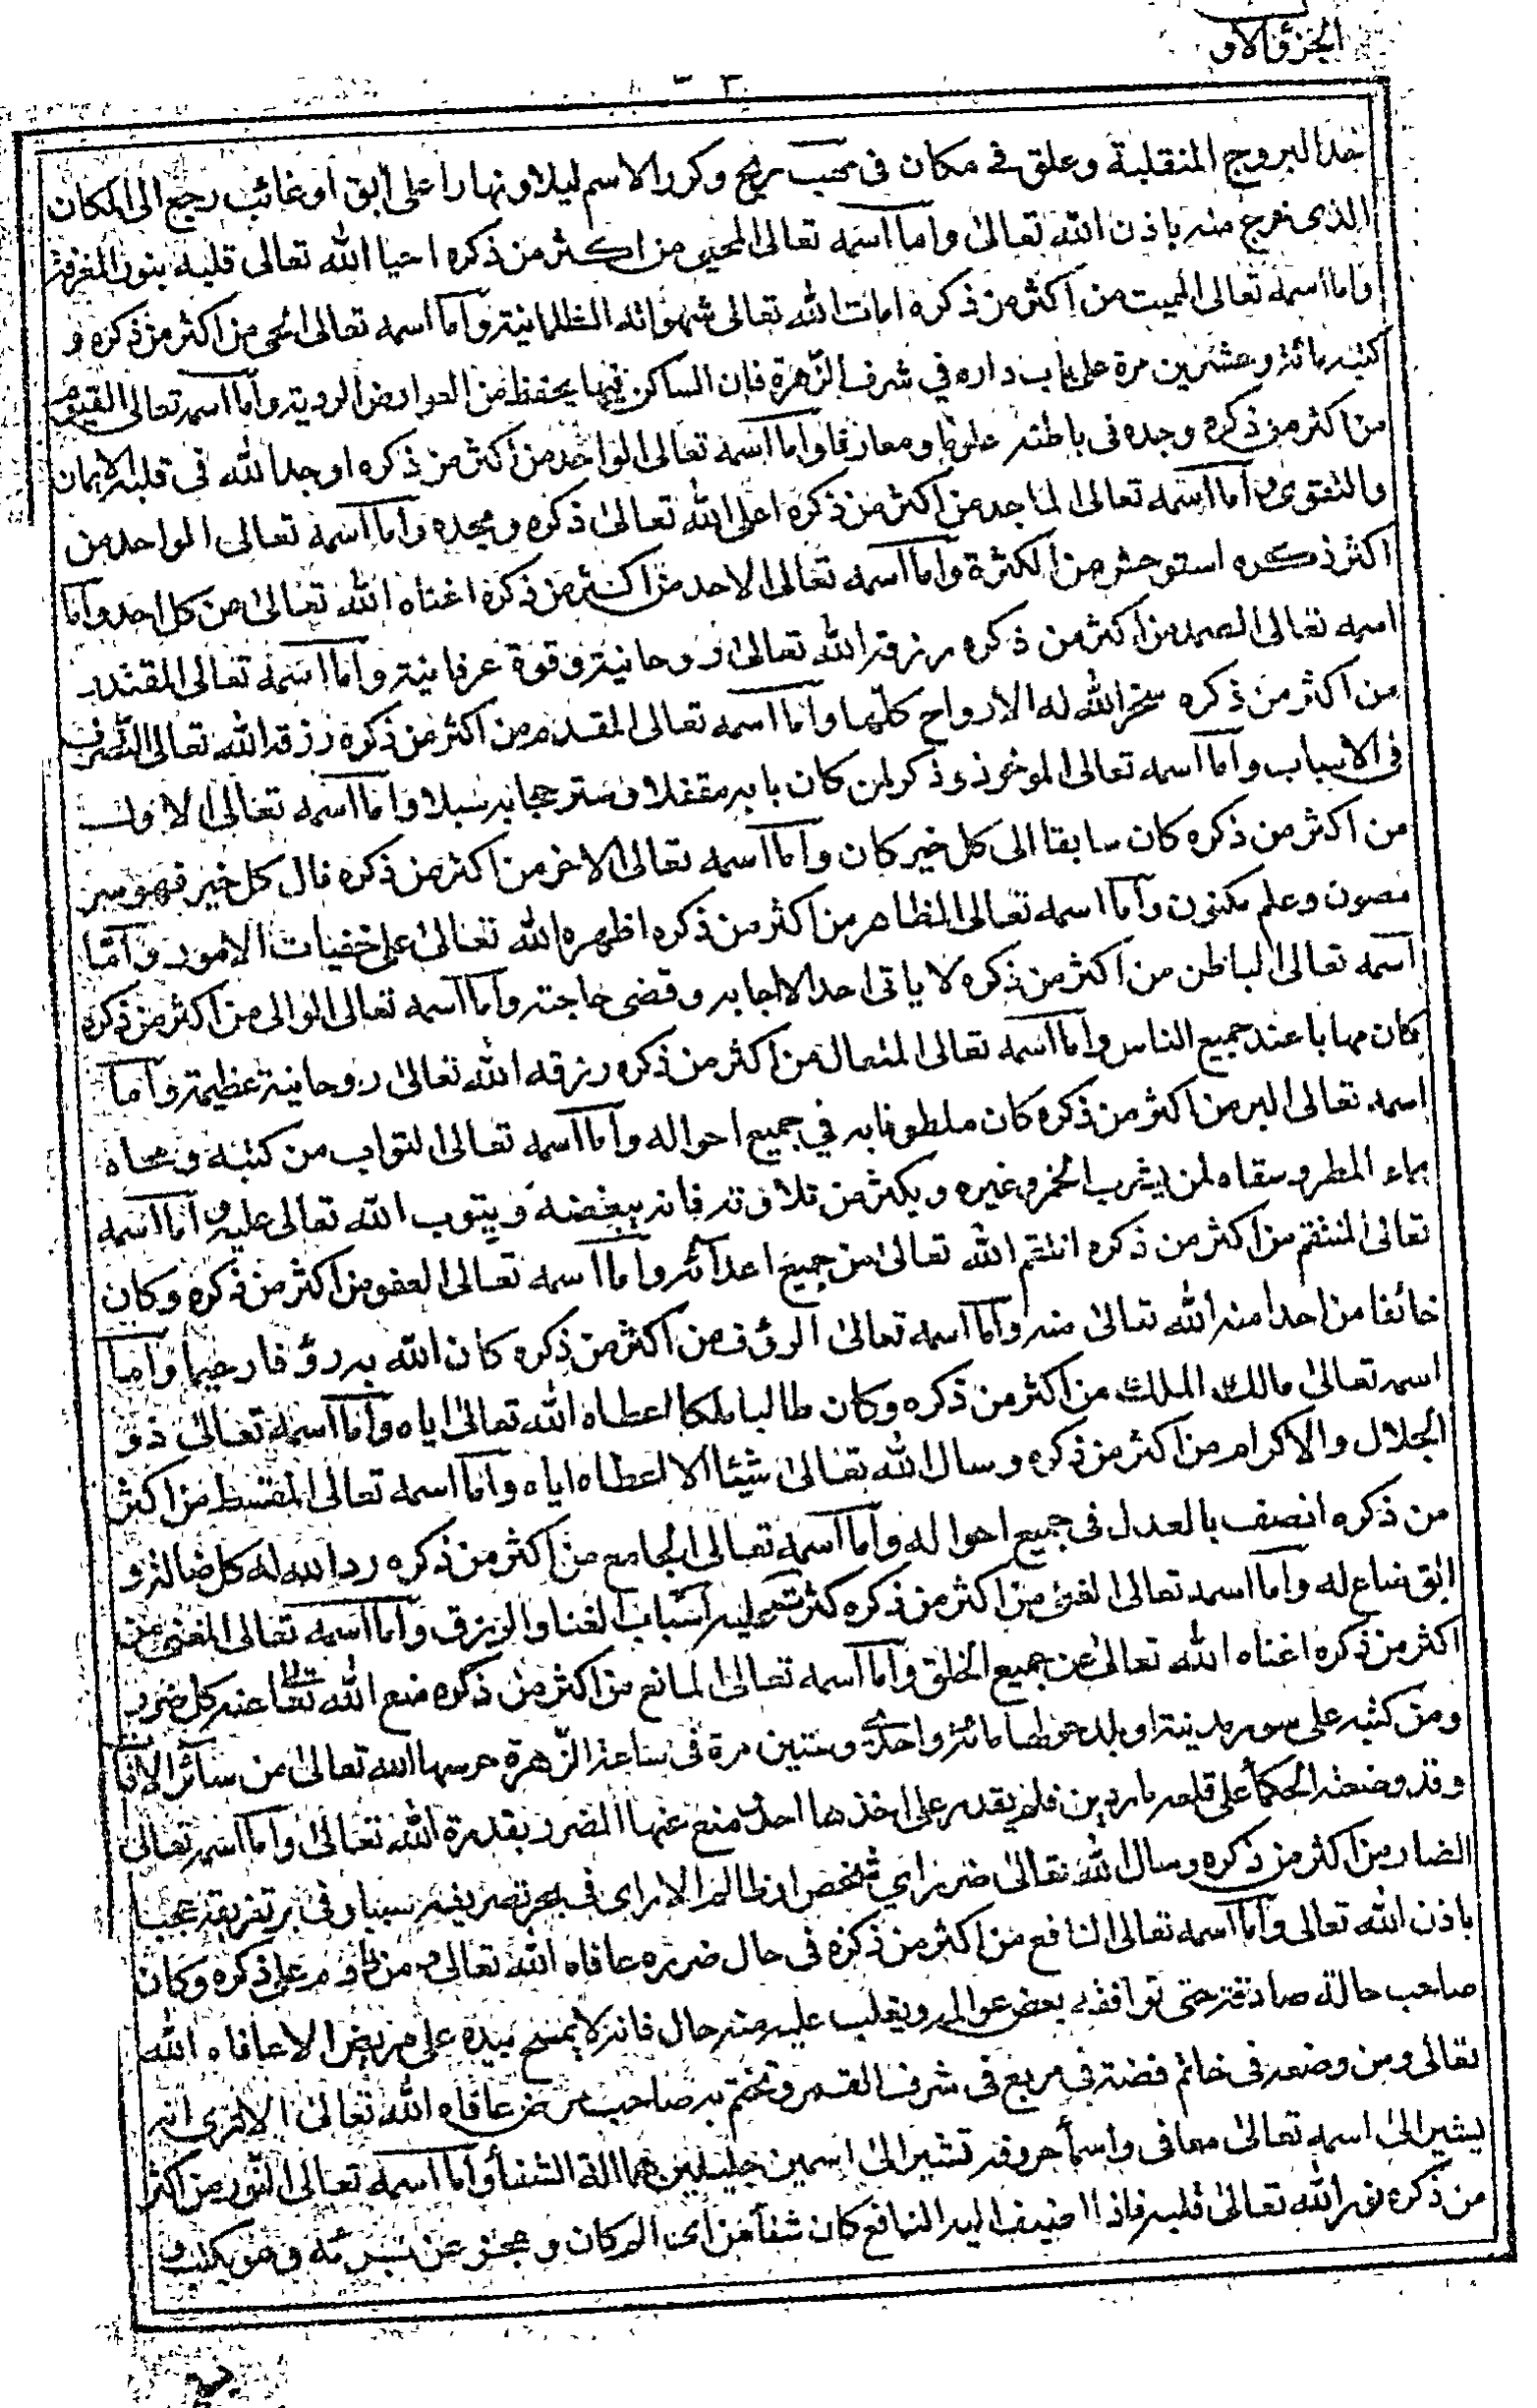 الجزؤ الاو
البروج المنقلبة وعلق في مكان فى مهب ريح وكرر الاسم ليلا ونهارا على ابق او غائب رجع الى المكان
الذى خرج منه باذن الله تعالى واما اسمه تعالى المحيى من اكثر من ذكره احيا الله تعالى قلبه بنور المعرفة
واما اسمه تعالى المميت من اكثر من ذكره امات الله تعالى شهواته الظلمانية واما اسمه تعالى الحى من اكثر من ذكره و
كتبه مائة وعشرين مرة على باب داره في شرف الزهرة فان الساكن فيها يحفظ من العوارض الردية واما اسمه تعالى القيوم
من اكثر من ذكره وجده فى باطنه علوما ومعارفا واما اسمه تعالى الواجد من اكثر من ذكره اوجد الله فى قلبه الايمان
والتقوى واما اسمه تعالى الماجد من اكثر من ذكره اعلى الله تعالى ذكره ومجده واما اسمه تعالى الواحد من
اكثر ذكره استوحش من الكثرة واما اسمه تعالى الاحد من اكثر من ذكره اغناه الله تعالى من كل احد واما
اسمه تعالى الصمد من اكثر من ذكره رزقه الله تعالى روحانية وقوة عرفانية واما اسمه تعالى المقتدر
من اكثر من ذكره سخر الله له الارواح كلها واما اسمه تعالى المقدم من اكثر من ذكره رزقه الله تعالى التصرف
فى الاسباب واما اسمه تعالى الموخر ذكر لمن كان بابه مقفلا وستر حجابه سبلا واما اسمه تعالى الاول
من اكثر من ذكره كان سابقا الى كل خير كان واما اسمه تعالى الاخر من اكثر من ذكره فال كل خير فهو سر
مصون وعلم مكنون واما اسمه تعالى الظاهر من اكثر من ذكره اظهره الله تعالى على خفيات الامور واما
اسمه تعالى الباطن من اكثر من ذكره لا ياتى احد الا اجابه وقضى حاجته واما اسمه تعالى الوالى من اكثر من ذكره
كان مهابا عند جميع الناس واما اسمه تعالى المتعال من اكثر من ذكره رزقه الله تعالى روحانية عظيمة واما
اسمه تعالى البر من اكثر من ذكره كان ملطوفا به في جميع احواله واما اسمه تعالى التواب من كتبه ومحاه
بماء المطر وسقاه لمن يشرب الخمر وغيره ويكثر من تلاوته فانه يبغضه ويتوب الله تعالى عليه واما اسمه
تعالى المنتقم من اكثر من ذكره انتقم الله تعالى من جميع اعدائه واما اسمه تعالى العفو من اكثر من ذكره وكان
خائفا من احد امنه الله تعالى منه واما اسمه تعالى الرؤف من اكثر من ذكره كان الله به رؤفا رحيما واما
اسمه تعالى مالك الملك من اكثر من ذكره وكان طالبا ملكا اعطاه الله تعالى اياه واما اسمه تعالى ذو
الجلال والاكرام من اكثر من ذكره وسال الله تعالى شيئا الا اعطاه اياه واما اسمه تعالى المقسط من اكثر
من ذكره اتصف بالعدل فى جميع احواله واما اسمه تعالى الجامع من اكثر من ذكره رد الله له كل ضالة و
ابق ضاع له واما اسمه تعالى الغنى من اكثر من ذكره كثرت عليه اسباب الغنا والرزق واما اسمه تعالى المغنى من
اكثر من ذكره اغناه الله تعالى عن جميع الخلق واما اسمه تعالى المانع من اكثر من ذكره منع الله تعالى عنه كل ضرر
ومن كتبه على سور مدينة او بلد مائة واحدى وستين مرة فى ساعة الزهرة حرسها الله تعالى من سائر الافا
وقد وضعته الحكماء على قلعة ماردين فلم يقدر على اخذها احد منع عنها الضرر بقدرة الله تعالى واما اسمه تعالى
الضار من اكثر من ذكره وسال الله تعالى ضرر اي شخص ان ظالما الا راى تصريفه فى تفريقه عجبا
باذن الله تعالى واما اسمه تعالى النافع من اكثر من ذكره فى حال ضرره عافاه الله تعالى ومن داوم على ذكره وكان
صاحب حالة صادقة حتى توافقه بعض عوالمه ويغلب عليه منه حال فانه لا يمسح بيده على مريض الا عافاه الله
تعالى ومن وضعه فى خاتم فضة فى مربع فى شرف القمر وتختم به صاحب مرض عافاه الله تعالى الا ترى انه
يشير الى اسمه تعالى معافى واسماء حروفه تشير الى اسمين جليلين هما الله الشفاء واما اسمه تعالى النور من اكثر
من ذكره نور الله تعالى قلبه فاذا اضيف اليه النافع كان شفاء من اى الم كان ومن يكتب و